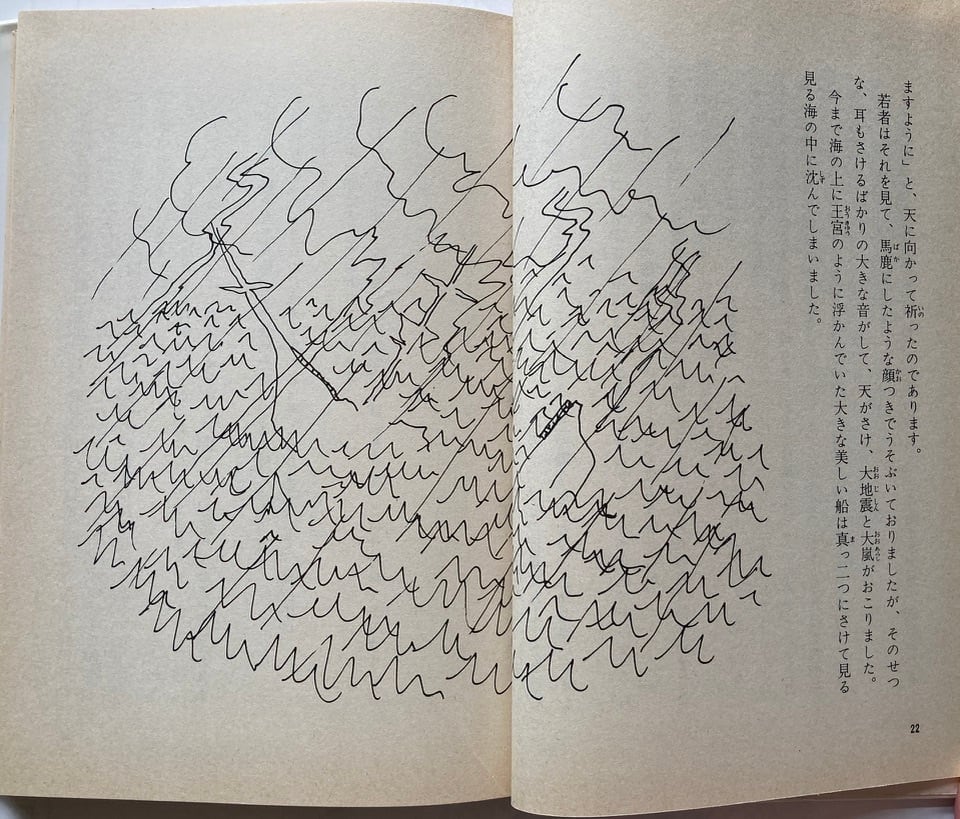 ますように」と、天に向かって祈ったのであります。
若者はそれを見て、馬鹿にしたような顔つきでうそぶいておりましたが、そのせつ
な、耳もさけるばかりの大きな音がして、天がさけ、大地震と大嵐がおこりました。
今まで海の上に王宮のように浮かんでいた大きな美しい船は真っ二つにさけて見る
見る海の中に沈んでしまいました。
22